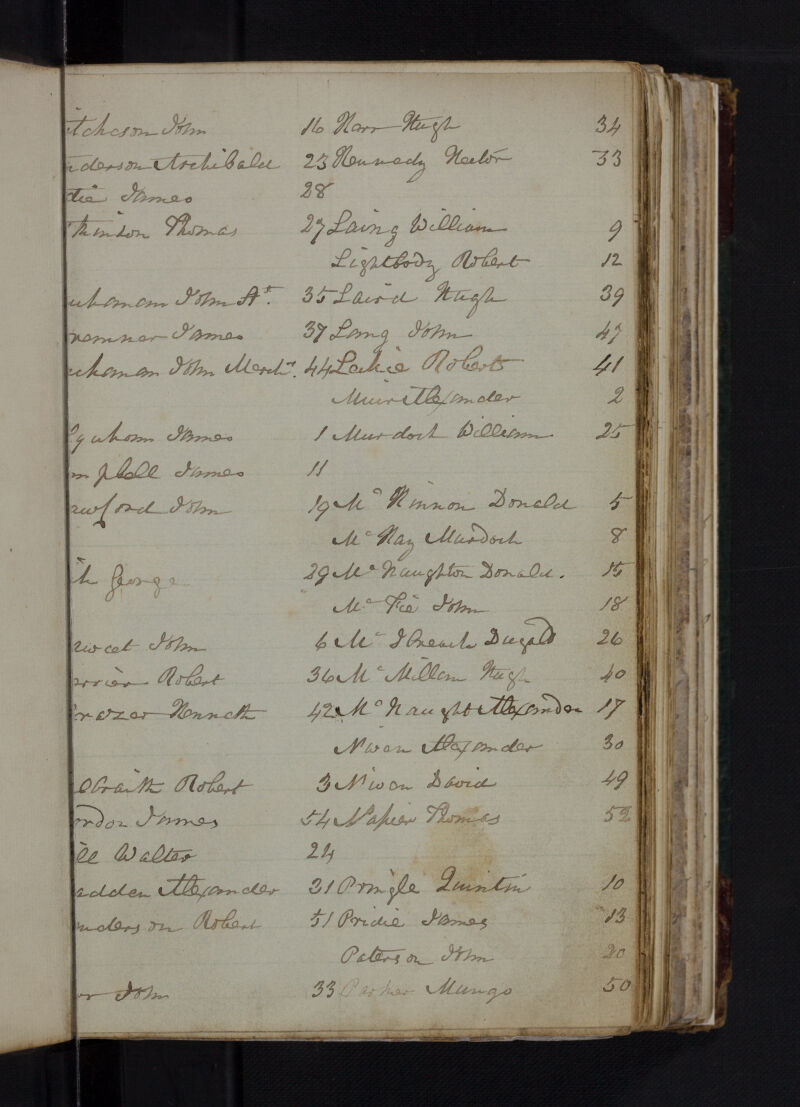 itcheson John 16 Karr Hugh 34
nderson Archibald 23 Kennedy Hector 33
die James 28
tkinson Thomas 27 Laing William 9
Lightbody Robert 12
uchanan John St. 35 Laird Hugh 39
remner James 37 Lang John 47
uchanan John Mercht. 44 Leckie Robert 41
Muir Alexander 2
lquhoun James 1 Murdoch William 25
mpbell James 11
awford John 19 Mc Kinnon Donald 5
Mc Kay Murdoch 8
th George 29 Mc Naughton Donald. 15
Mc Fie John 18
awcet John 6 Mc Dugald 26
errier Robert 36 Mc Millan Hugh 40
razer Kenneth 42 Mc Naught Alexander 17
Niven Alexander 30
lbraith Robert 3 Niven David 49
ordon James 54 Napier Thomas 52
ill Walter 24
adden Alexander 31 Pringle Quintin 10
nderson Robert 51 Pridie James 13
Paterson John 20
rr John 33 Parker Mungo 50